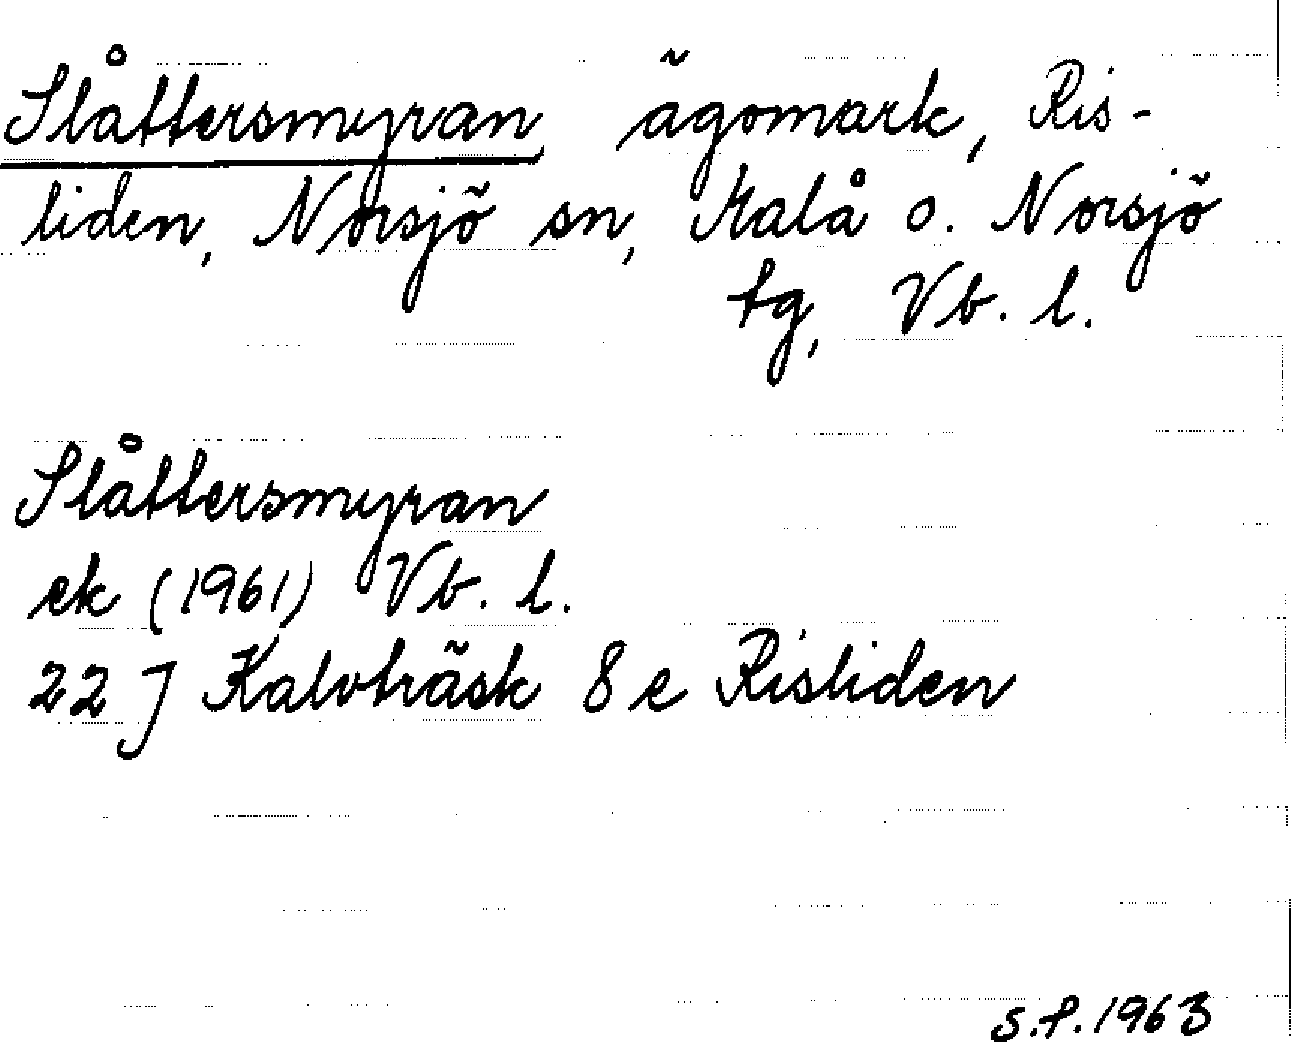 Slåttersmyran ägomark, Ris-
liden, Norsjö sn, Malå o. Norsjö
tg, Vb. l.
Slåttersmyran
ek (1961) Vb. l.
22 J Kalvträsk 8 e Risliden
S.P. 1963